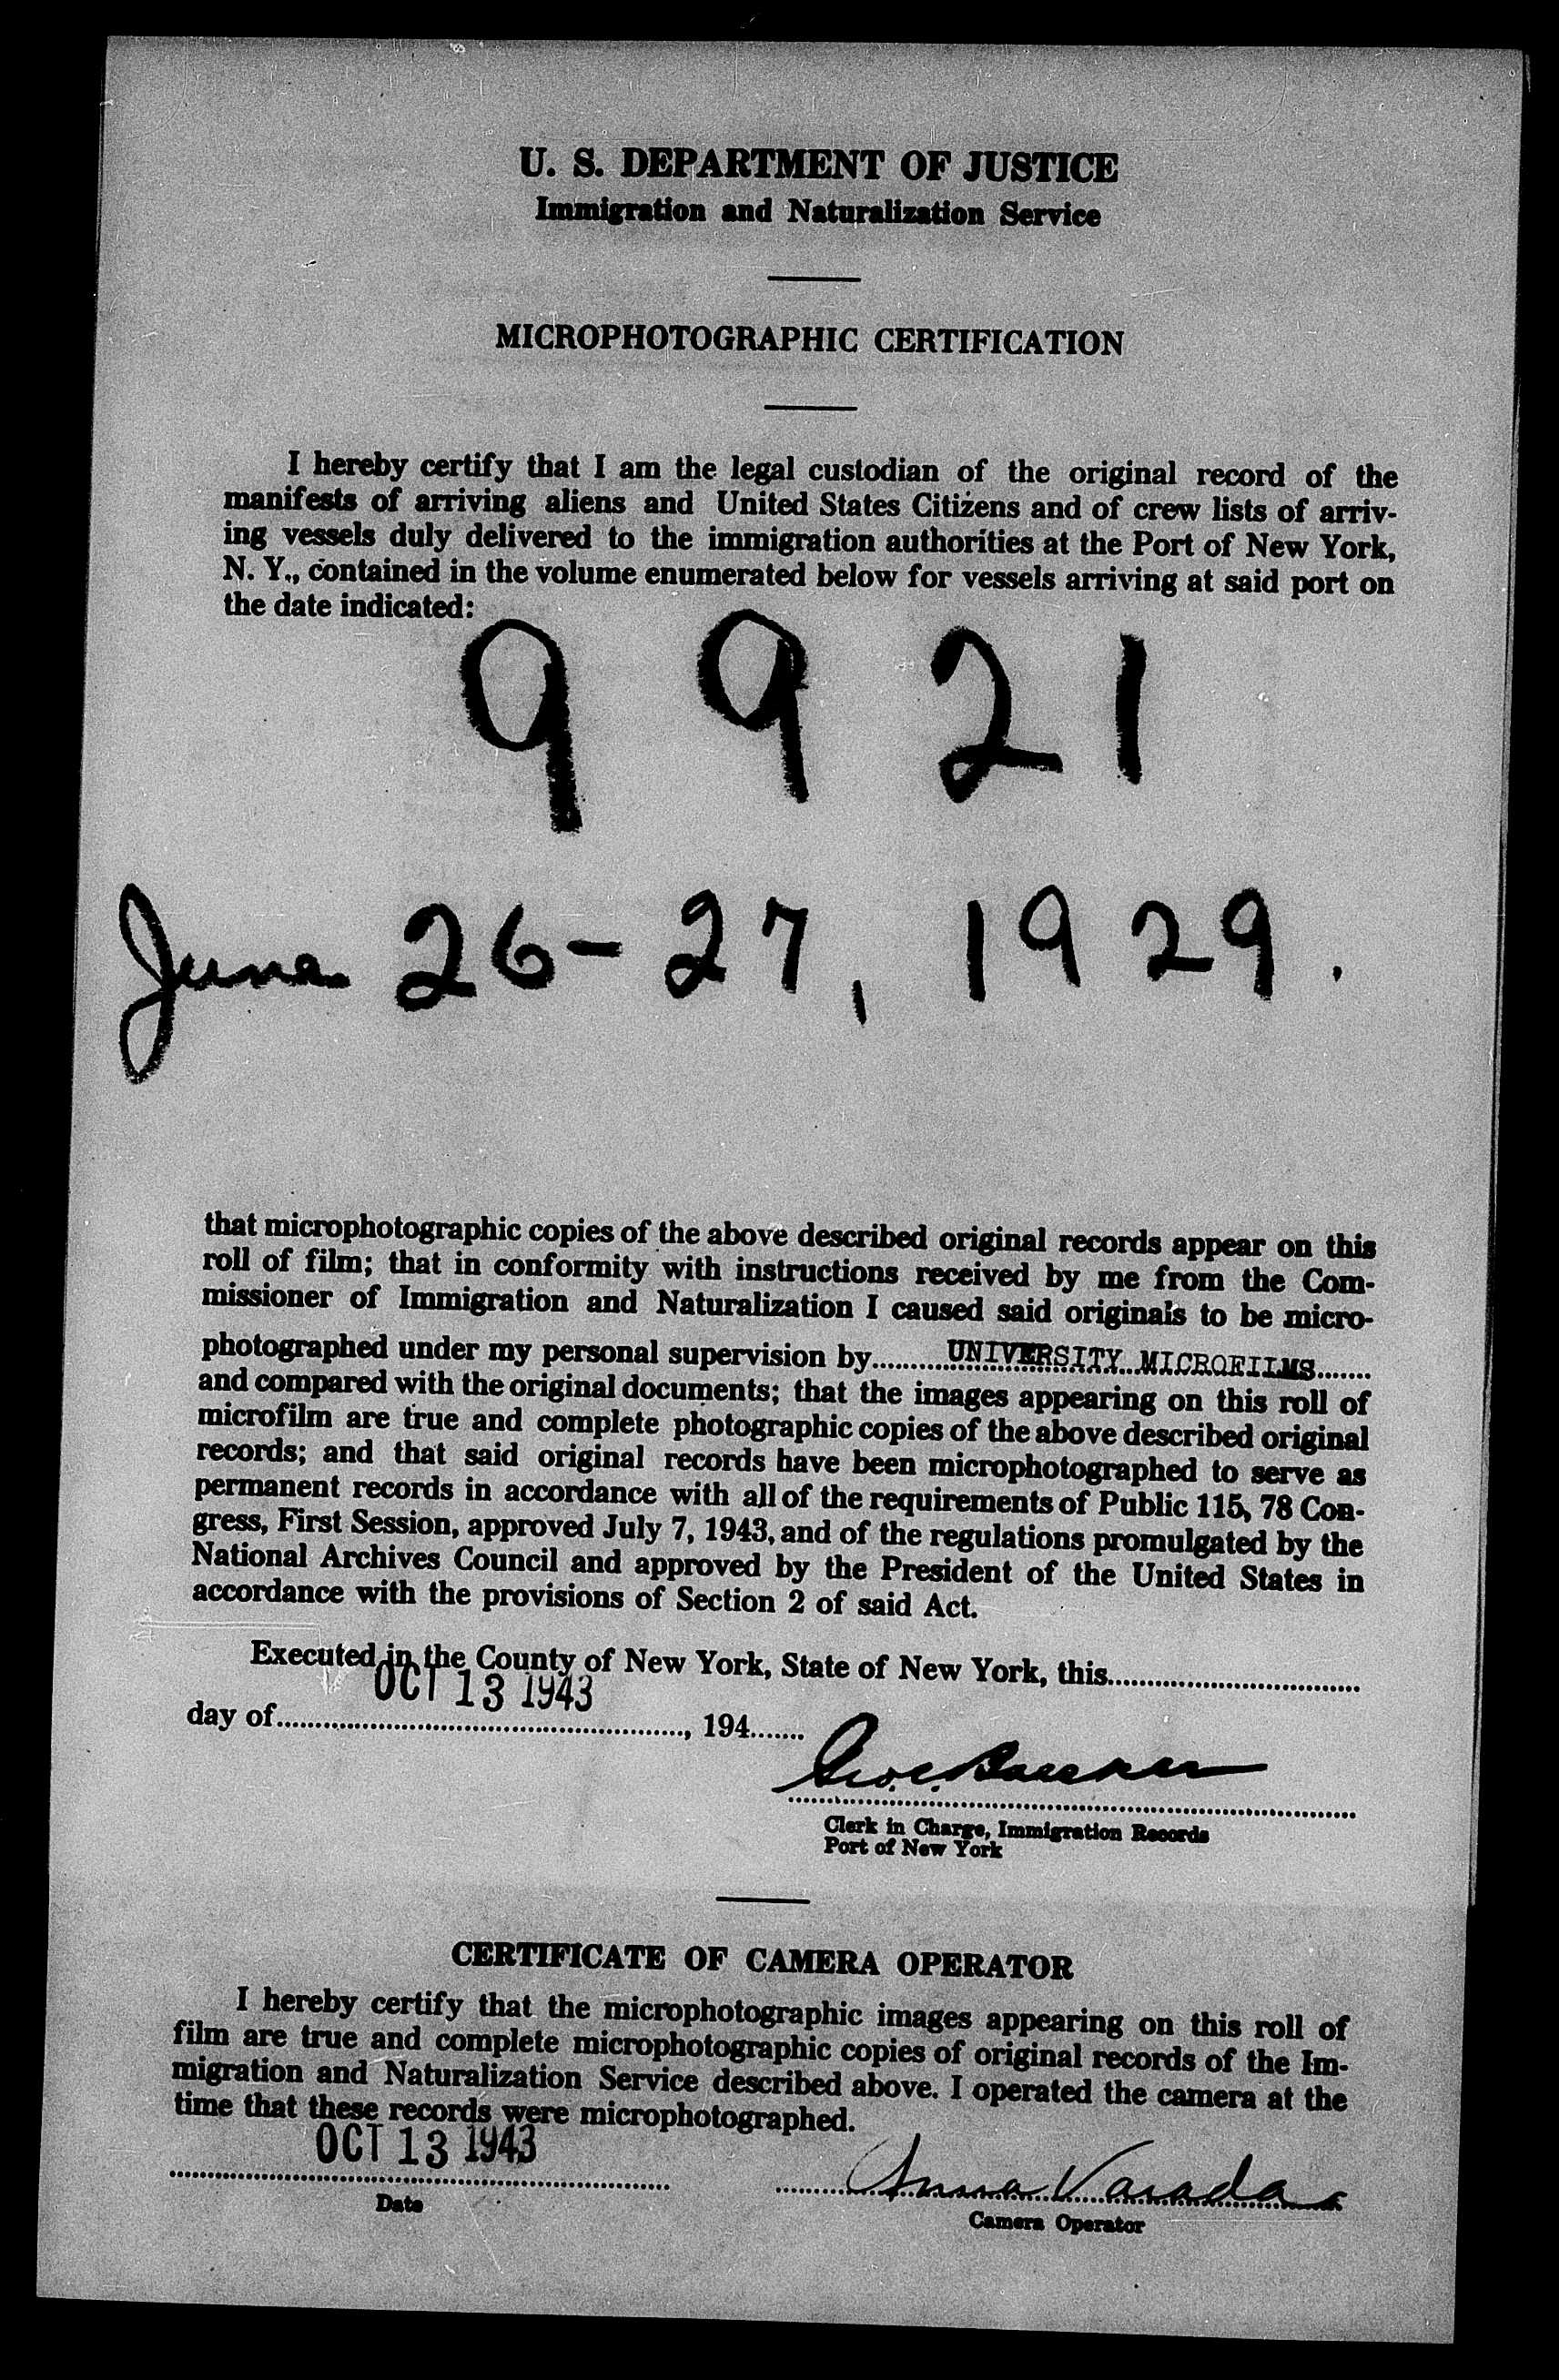 U. S. DEPARTMENT OF JUSTICE
Immigration and Naturalization Service
MICROPHOTOGRAPHIC CERTIFICATION
I hereby certify that I am the legal custodian of the original record of the
manifests of arriving aliens and United States Citizens and of crew lists of arriv-
ing vessels duly delivered to the immigration authorities at the Port of New York,
N. Y., contained in the volume enumerated below for vessels arriving at said port on
the date indicated:
9921
June 26-27, 1929.
that microphotographic copies of the above described original records appear on this
roll of film; that in conformity with instructions received by me from the Com-
missioner of Immigration and Naturalization I caused said originals to be micro-
photographed under my personal supervision by UNIVERSITY MICROFILMS
and compared with the original documents; that the images appearing on this roll of
microfilm are true and complete photographic copies of the above described original
records; and that said original records have been microphotographed to serve as
permanent records in accordance with all of the requirements of Public 115, 78 Con-
gress, First Session, approved July 7, 1943, and of the regulations promulgated by the
National Archives Council and approved by the President of the United States in
accordance with the provisions of Section 2 of said Act.
Executed in the County of New York, State of New York, this
OCT 13 1943
day of , 194
Clerk in Charge, Immigration Records
Port of New York
CERTIFICATE OF CAMERA OPERATOR
I hereby certify that the microphotographic images appearing on this roll of
film are true and complete microphotographic copies of original records of the Im-
migration and Naturalization Service described above. I operated the camera at the
time that these records were microphotographed.
OCT 13 1943
Anna Varada
Date
Camera Operator